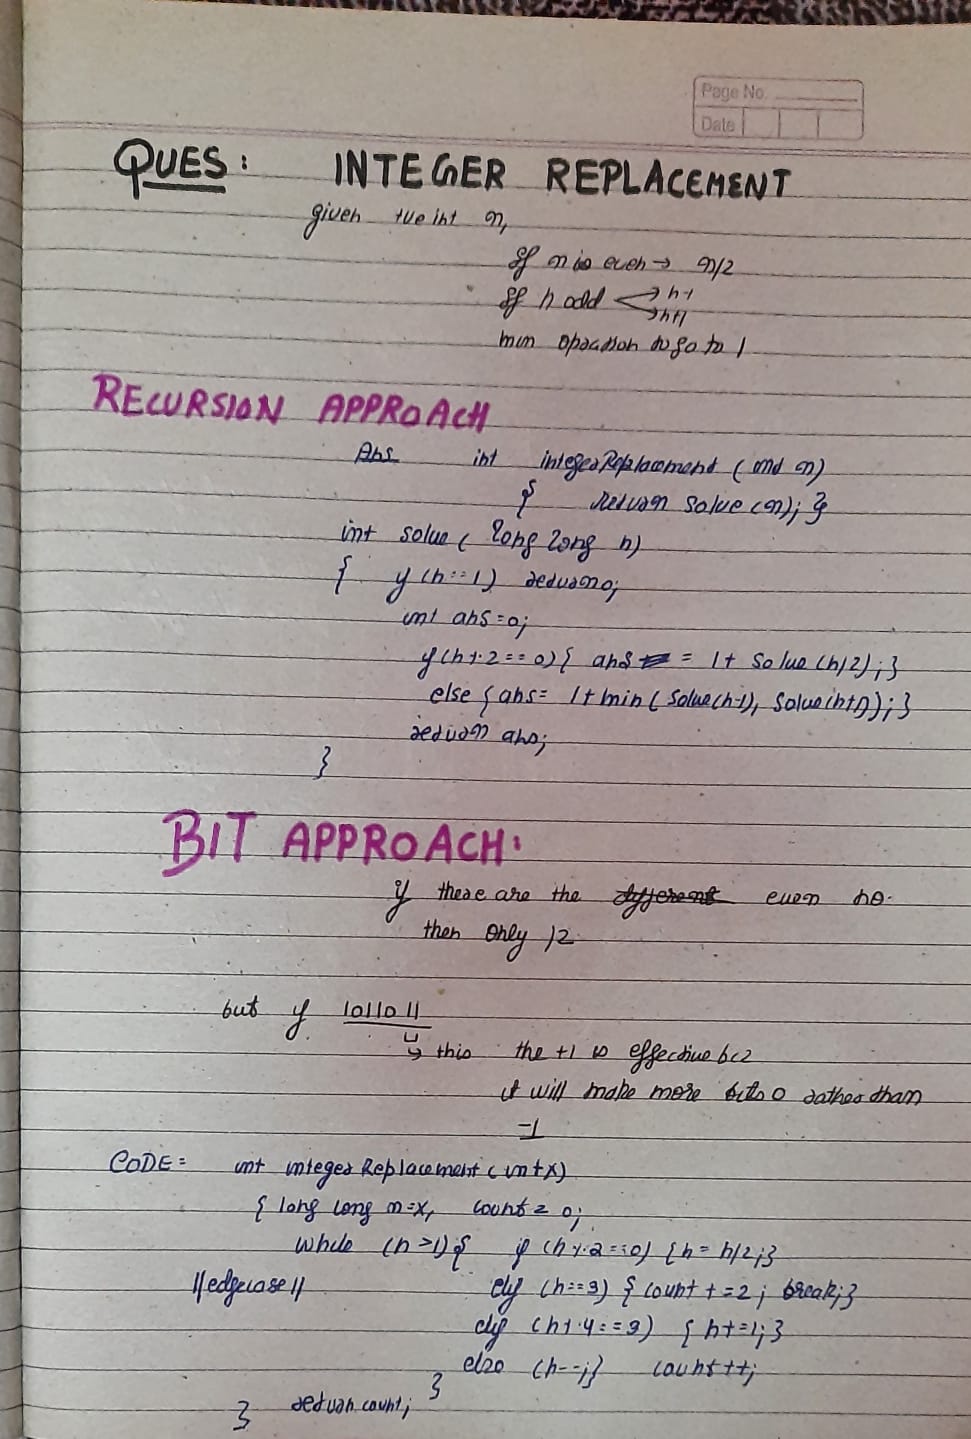 Page No.
Date
QUES: INTEGER REPLACEMENT
given +ve int n,
If n is even → n/2
If n odd → n-1
→ n+1
min operation to go to 1
RECURSION APPROACH
Ans int integerReplacement (int n)
{ return solve(n); }
int solve( long long n)
{ if (n==1) return 0;
int ans=0;
if(n%2==0){ ans = 1+ solve(n/2);}
else {ans= 1+min( solve(n-1), solve(n+1));}
return ans;
}
BIT APPROACH:
if these are the even no.
then only /2
but if 1011011
↳ this the +1 is effective bcz
it will make more bits 0 rather than
-1
CODE= int integerReplacement (int x)
{ long long n=x, count = 0;
while (n>1){ if (n%2==0) {n= n/2;}
//edgecase// elif (n==3) { count +=2; break;}
elif (n%4==3) { n+=1;}
else (n--;} count++;
}
} return count;